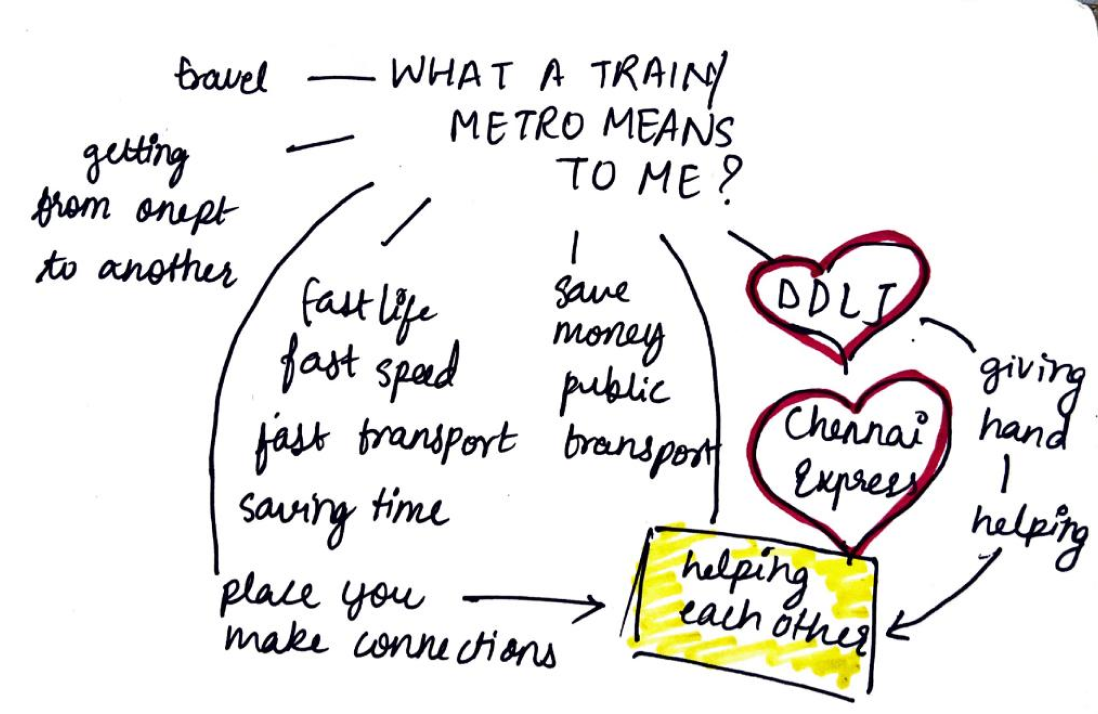 travel
WHAT A TRAIN/
METRO MEANS
TO ME?
getting
from one pt
to another
fast life
fast speed
fast transport
saving time
save
money
public
transport
DDLJ
Chennai
Express
giving
hand
helping
place you
make connections
helping
each other